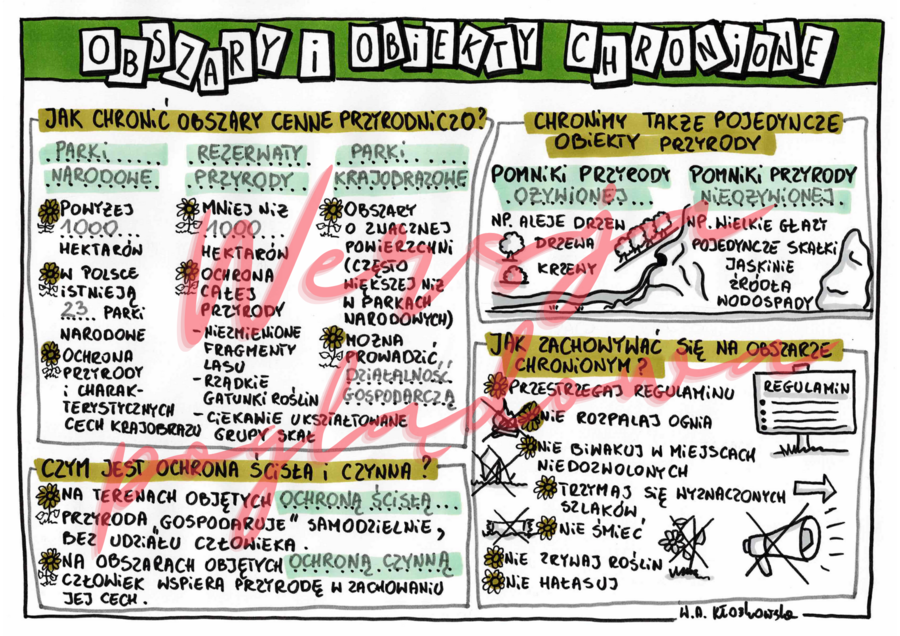 OBSZARY I OBIEKTY CHRONIONE
JAK CHRONIĆ OBSZARY CENNE PRZYRODNICZO?
PARKI
NARODOWE
POWYŻEJ
1000
HEKTARÓW
W POLSCE
ISTNIEJĄ
23 PARKI
NARODOWE
OCHRONA
PRZYRODY
I CHARAK-
TERYSTYCZNYCH
CECH KRAJOBRAZU
REZERWATY
PRZYRODY
MNIEJ NIŻ
1000
HEKTARÓW
OCHRONA
CAŁEJ
PRZYRODY
- NIEZMIENIONE
FRAGMENTY
LASU
- RZADKIE
GATUNKI ROŚLIN
- CIEKAWIE UKSZTAŁTOWANE
GRUPY SKAŁ
PARKI
KRAJOBRAZOWE
OBSZARY
O ZNACZNEJ
POWIERZCHNI
(CZĘSTO
WIĘKSZEJ NIŻ
W PARKACH
NARODOWYCH)
MOŻNA
PROWADZIĆ
DZIAŁALNOŚĆ
GOSPODARCZĄ
CZYM JEST OCHRONA ŚCISŁA I CZYNNA?
NA TERENACH OBJĘTYCH OCHRONĄ ŚCISŁĄ
PRZYRODA „GOSPODARUJE" SAMODZIELNIE,
BEZ UDZIAŁU CZŁOWIEKA.
NA OBSZARACH OBJĘTYCH OCHRONĄ CZYNNĄ
CZŁOWIEK WSPIERA PRZYRODĘ W ZACHOWANIU
JEJ CECH.
CHRONIMY TAKŻE POJEDYNCZE
OBIEKTY PRZYRODY
POMNIKI PRZYRODY
OŻYWIONEJ
NP. ALEJE DRZEW
DRZEWA
KRZEWY
POMNIKI PRZYRODY
NIEOŻYWIONEJ
NP. WIELKIE GŁAZY
POJEDYNCZE SKAŁKI
JASKINIE
ŹRÓDŁA
WODOSPADY
JAK ZACHOWYWAĆ SIĘ NA OBSZARZE
CHRONIONYM?
PRZESTRZEGAJ REGULAMINU
NIE ROZPALAJ OGNIA
NIE BIWAKUJ W MIEJSCACH
NIEDOZWOLONYCH
TRZYMAJ SIĘ WYZNACZONYCH
SZLAKÓW
NIE ŚMIEĆ
NIE ZRYWAJ ROŚLIN
NIE HAŁASUJ
REGULAMIN
Wersja
poglądowa
W.A. Kłoskowska